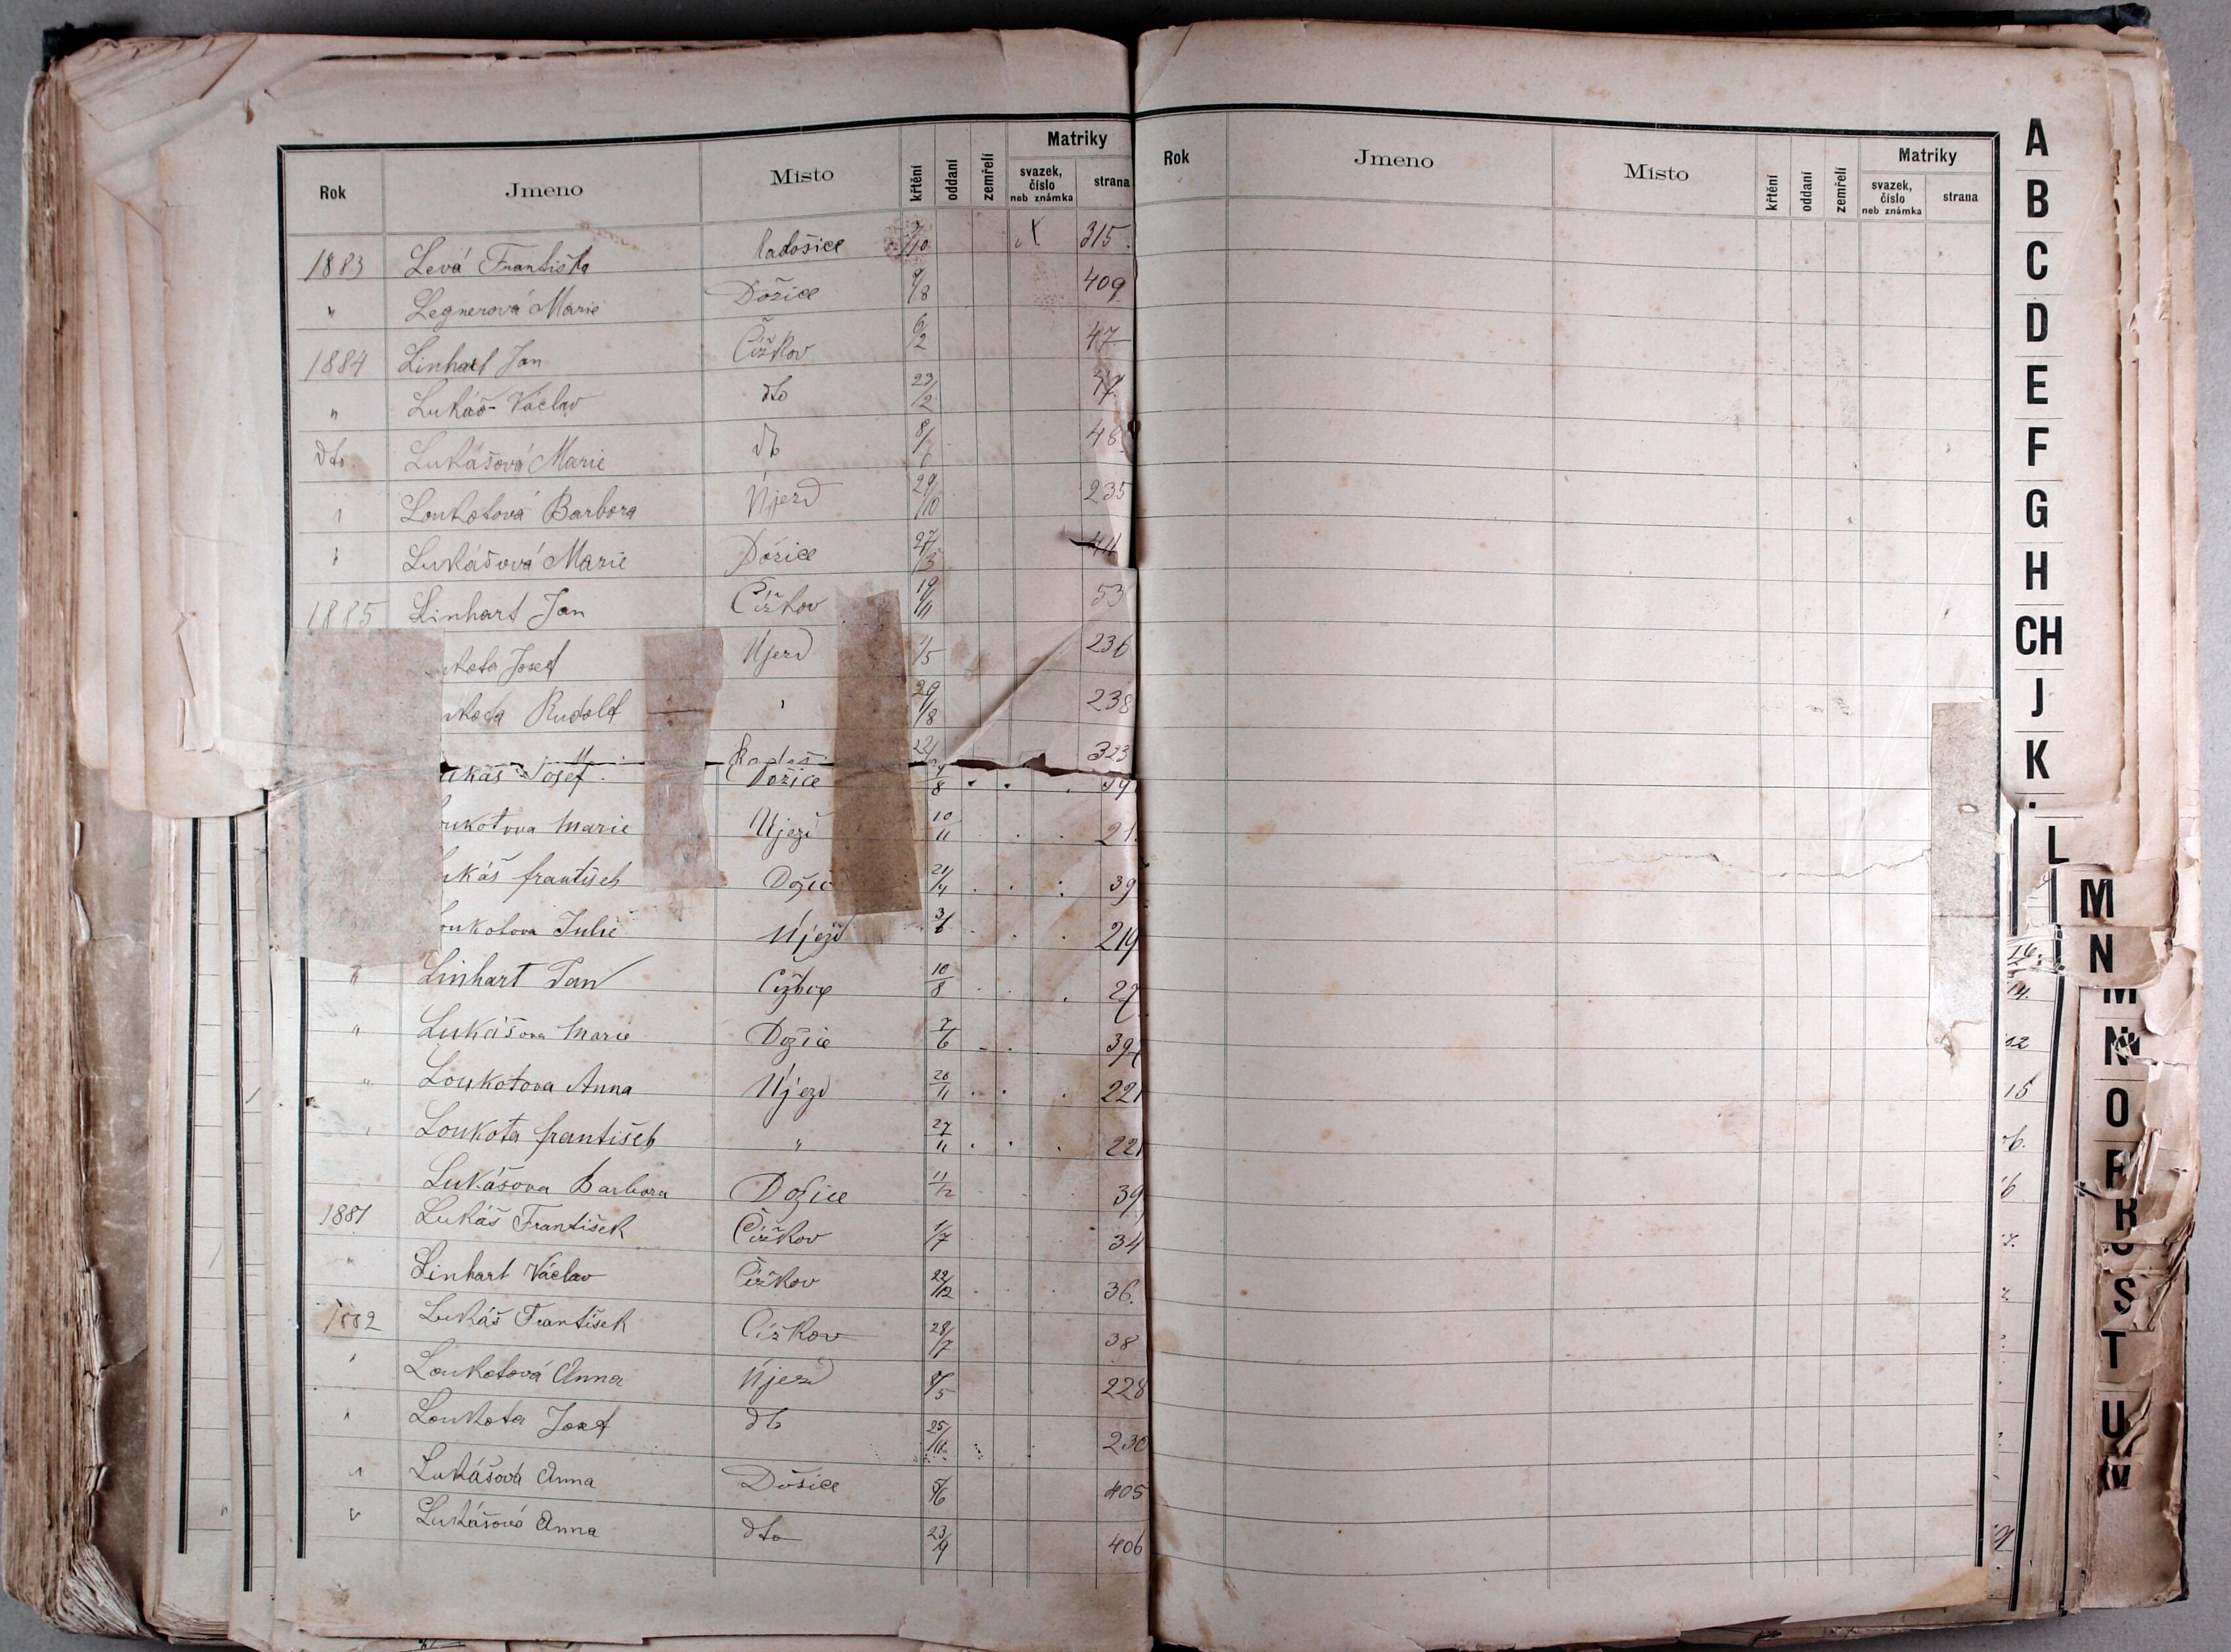 Rok Jmeno Místo křtění oddaní zemřelí Matriky svazek, číslo neb známka strana
1883 Levá Františka Radošice 315.
" Legnerová Marie Dožice 9/8 409
1884 Linhart Jan Čížkov 6/2 47
" Lukáš Václav dto 23/2 47
dto Lukášová Marie dto 8/ 48
" Loukotová Barbora Újezd 29/10 235
" Lukášová Marie Dožice 27/3
1885 Linhart Jan Čížkov 19/11 53
Josef Újezd 1/5 236
Rudolf " 29/8 238
22/ 323
ukáš Josef Dožice /8
oukotova Marie Ujezd 10/11 21
ukáš františek 21/4 39
oukotova Julie Újezd 3/6 219
" Linhart Jan 10/8 27
" Lukášova Marie Dožice 7/6 39
" Loukotova Anna Újezd 20/11 221
" Loukota františek " 27/11 221
Lukášova Barbora Dožice 11/12 39
1881 Lukáš František Čížkov 1/7 34
" Linhart Václav Čížkov 22/12 36.
1882 Lukáš František Čížkov 28/7 38
" Loukotová Anna Újezd 8/5 228
" Loukota Josef dto 25/11 230
" Lukášová Anna Dožice 5/6 405
" Lukášová Anna dto 23/9 406
Rok Jmeno Místo křtění oddaní zemřelí Matriky svazek, číslo neb známka strana
A
B
C
D
E
F
G
H
CH
J
K
L
M
N
M
N
O
P
R
S
T
U